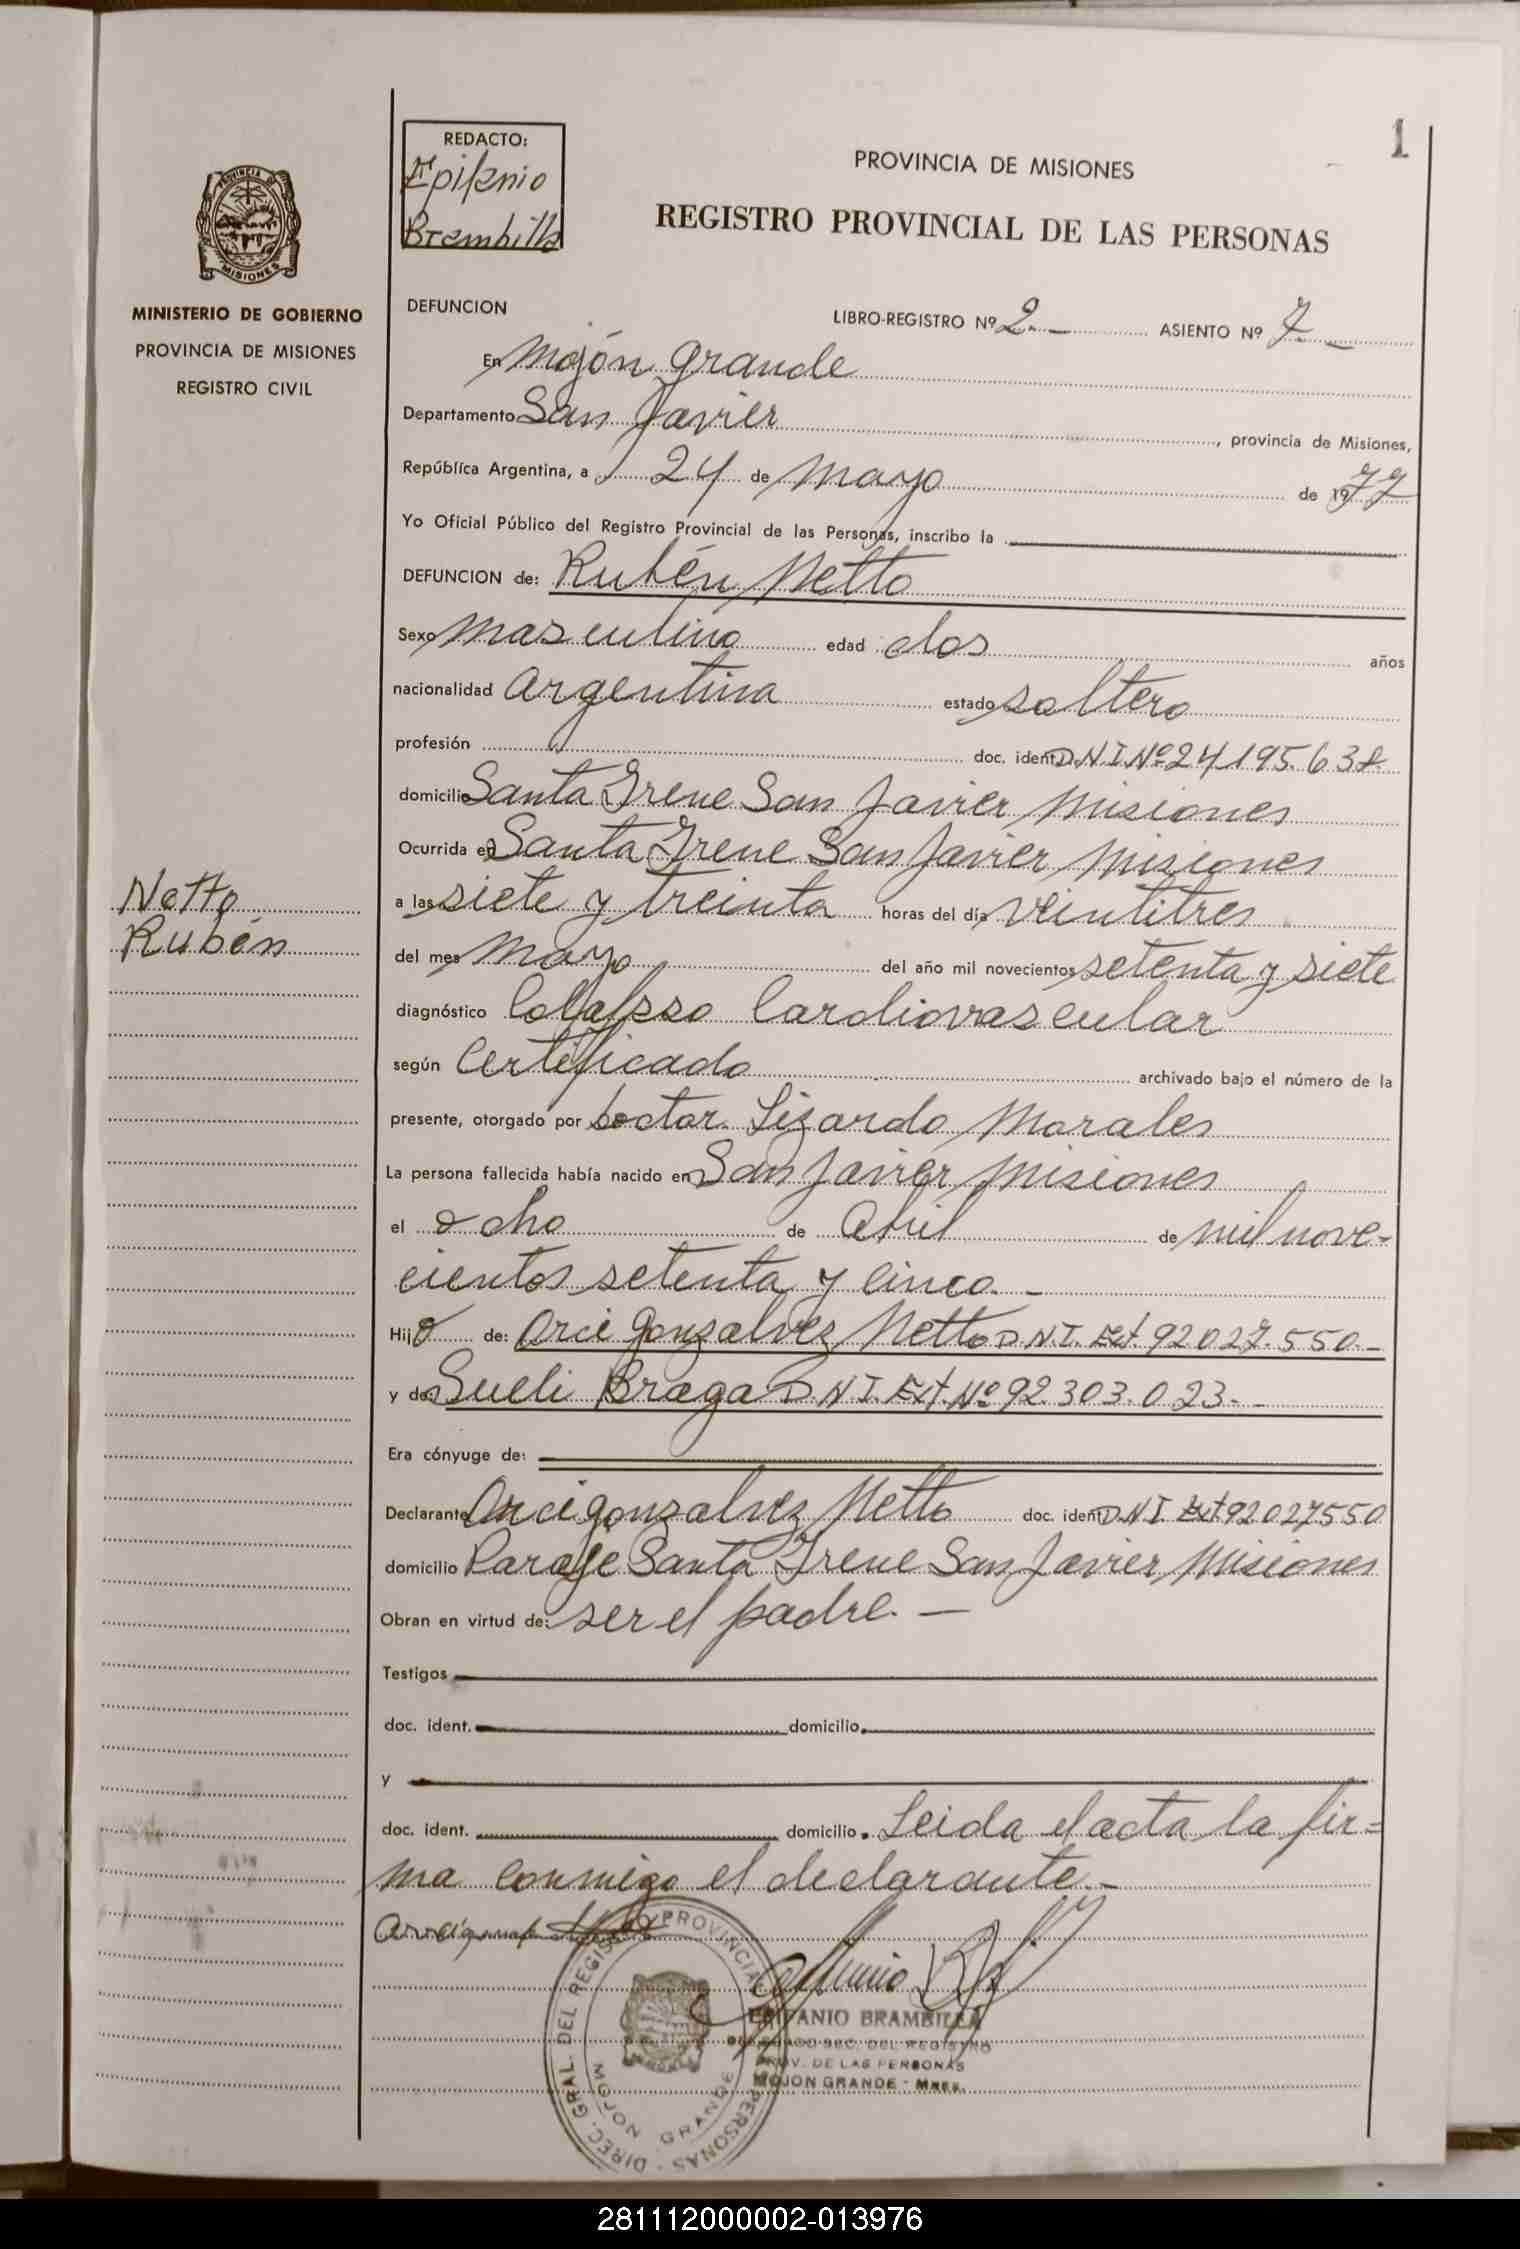 1
REDACTO:
Epifanio
Brambilla
PROVINCIA DE MISIONES
REGISTRO PROVINCIAL DE LAS PERSONAS
PROVINCIA DE
MISIONES
MINISTERIO DE GOBIERNO
PROVINCIA DE MISIONES
REGISTRO CIVIL
DEFUNCION
LIBRO-REGISTRO Nº 2.- ASIENTO Nº 7.-
En Mojón Grande
Departamento San Javier, provincia de Misiones,
República Argentina, a 24 de Mayo de 1977
Yo Oficial Público del Registro Provincial de las Personas, inscribo la
DEFUNCION de: Rubén Netto
Sexo Masculino edad dos años
nacionalidad Argentina estado soltero
profesión doc. ident. D.N.I.Nº 24.195.638
domicilio Santa Irene San Javier Misiones
Ocurrida en Santa Irene San Javier Misiones
a las siete y treinta horas del día veintitres
del mes Mayo del año mil novecientos setenta y siete
diagnóstico Colapso Cardiovascular
según Certificado archivado bajo el número de la
presente, otorgado por Doctor Lizardo Morales
La persona fallecida había nacido en San Javier Misiones
el ocho de Abril de mil nove-
cientos setenta y cinco.-
Hijo de: Orci Gonzalvez Netto D.N.I. Ext. 92.027.550.-
y de: Sueli Braga D.N.I. Ext. Nº 92.303.023.-
Era cónyuge de:
Declarante Orci Gonzalvez Netto doc. ident. D.N.I. Ext. 92027550
domicilio Paraje Santa Irene San Javier Misiones
Obran en virtud de: ser el padre.-
Testigos
doc. ident. domicilio
y
doc. ident. domicilio. Leida el acta la fir=
ma conmigo el declarante.-
Netto
Rubén
DIREC. GRAL. DEL REGISTRO PROVINCIAL PERSONAS
MOJON GRANDE
EPIFANIO BRAMBILLA
SEC. DEL REGISTRO
PROV. DE LAS PERSONAS
MOJON GRANDE - Mnes.
281112000002-013976